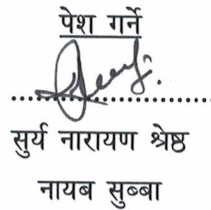 पेश गर्ने
सुर्य नारायण श्रेष्ठ
नायब सुब्बा